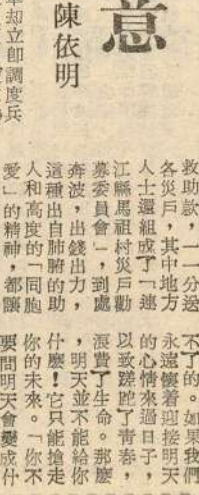 意
陳依明
却立即調度兵
救助款，一一分送
各災戶，其中地方
人士還組成了「連
江縣馬祖村災戶勸
募委員會」，到處
奔波，出錢出力，
這種出自肺腑的助
人和高度的「同胞
愛」的精神，都讓
不了的。如果我們
永遠懷着迎接明天
的心情來過日子，
以致蹉跎了青春，
浪費了生命。那麼
，明天並不能給你
什麼！它只能搶走
你的未來。「你不
要問明天會變成什